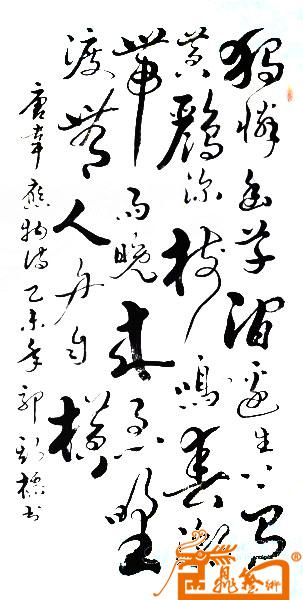 獨憐幽草澗邊生上有
黄鸝深樹鳴春潮
帶雨晚来急野
渡無人舟自横
唐韋應物詩乙未年郭標书